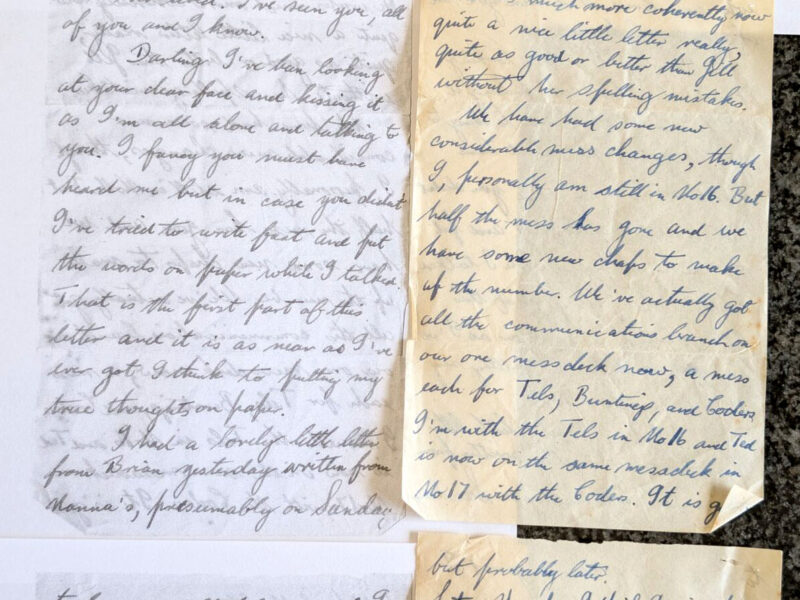 I've seen you, all
of you and I know.
Darling I've ban looking
at your dear face and kissing it
as I'm all alone and talking to
you. I fancy you must have
heard me but in case you didn't
I've tried to write fast and put
the words on paper while I talked.
That is the first part of this
letter and it is as near as I've
ever got I think to putting my
true thoughts on paper.
I had a lovely little letter
from Brian yesterday written from
Nanna's, presumably on Sunday,
much more coherently now
quite a nice little letter really,
quite as good or better than Gill
without her spelling mistakes.
We have had some new
considerable mess changes, though
I, personally am still in No16. But
half the mess has gone and we
have some new chaps to make
up the number. We've actually got
all the communications branch on
our one messdeck now, a mess
each for Tels, Buntings, and Coders
I'm with the Tels in No16 and Ted
is now on the same messdeck in
No17 with the Coders. It is
but probably later.